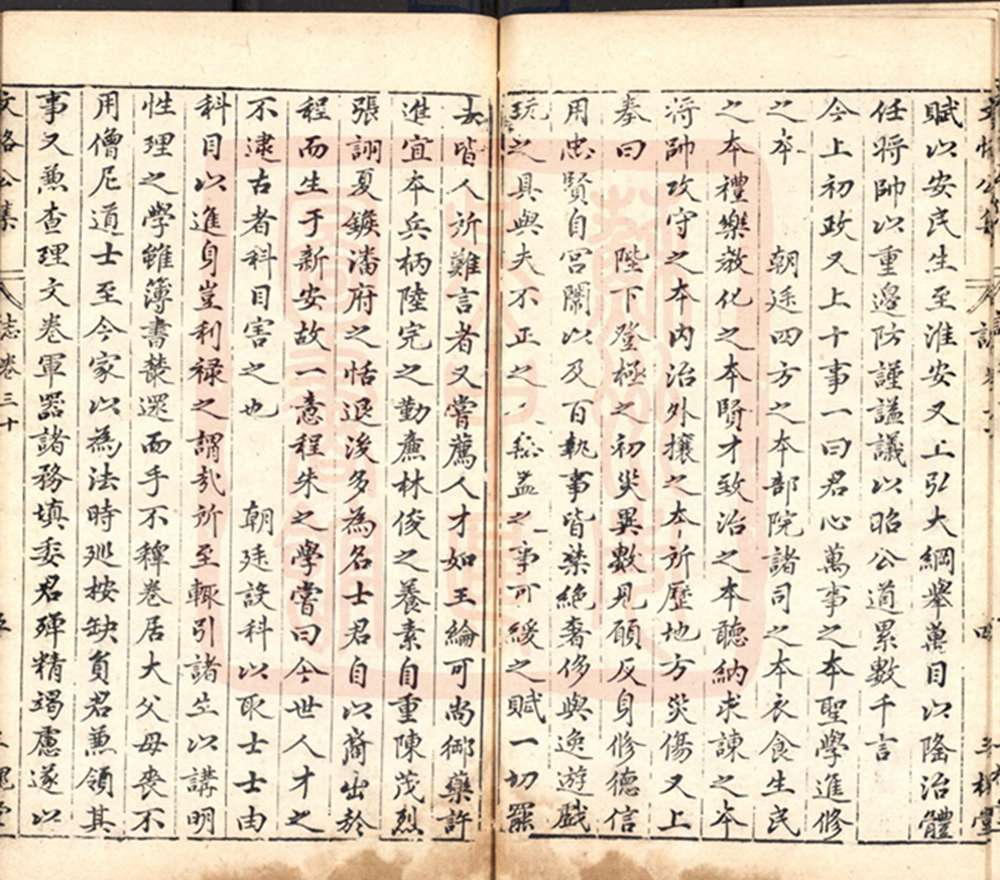 賦以安民生至淮安又上弘大綱舉萬目以隆治體
任將帥以重邊防謹謚議以昭公道累數千言
今上初政又上十事一曰君心萬事之本聖學進修
之本　朝廷四方之本部院諸司之本衣食生民
之本禮樂教化之本賢才致治之本聽納求諫之本
將帥攻守之本內治外攘之本所歷地方災傷又上
奏曰　陛下登極之初災異數見願反身修德信
用忠賢自宮闈以及百執事皆禁絕奢侈與逸遊戲
玩之具與夫不正之人無益之事可緩之賦一切罷
去皆人所難言者又嘗薦人才如王綸可尚御藥許
進宜本兵柄陸完之勤廉林俊之養素自重陳茂烈
張詡夏鍭潘府之恬退後多為名士君自以裔出於
程而生于新安故一意程朱之學嘗曰今世人才之
不逮古者科目害之也　朝廷設科以取士士由
科目以進身豈利祿之謂哉所至輒引諸生以講明
性理之學雖簿書叢遝而手不釋卷居大父母喪不
用僧尼道士至今家以為法時巡按缺員君兼領其
事又兼查理文卷軍器諸務填委君殫精竭慮遂以
文 公集　志卷三十